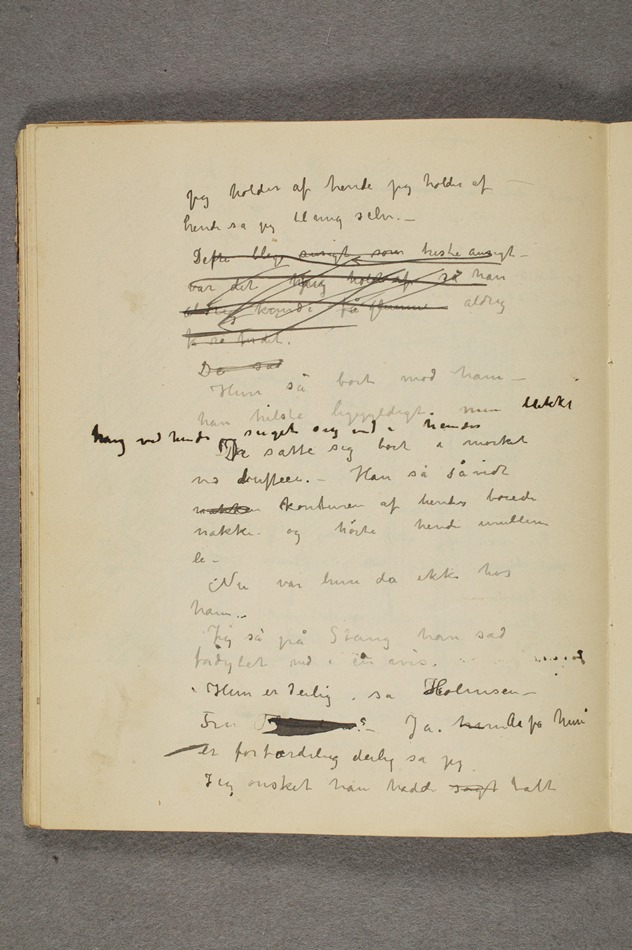 jeg holder af hende jeg holder af —
hende sa jeg til mig selv. —
Dette bleg ansigt som triste ansigt —
var det holdt af så han
aldrig kunde få aldrig
Da sad
Hun så bort mod ham —
han hilste ligegyldigt. men blikket
hang ved hende suget sig ind i hendes
De satte sig bort i mørket
ved —. Han så såvidt
nakken konturen af hendes boiede
nakke og hørte hende imellem
le —
Nu var hun da ikke hos
ham..
Jeg så på Stang han sad
fordybet ned i en avis.
Hun er deilig, sa Holmsen —
Fru ? — Ja. hun
er forfærdelig deilig sa jeg
Jeg ønsket han hadde sagt halt